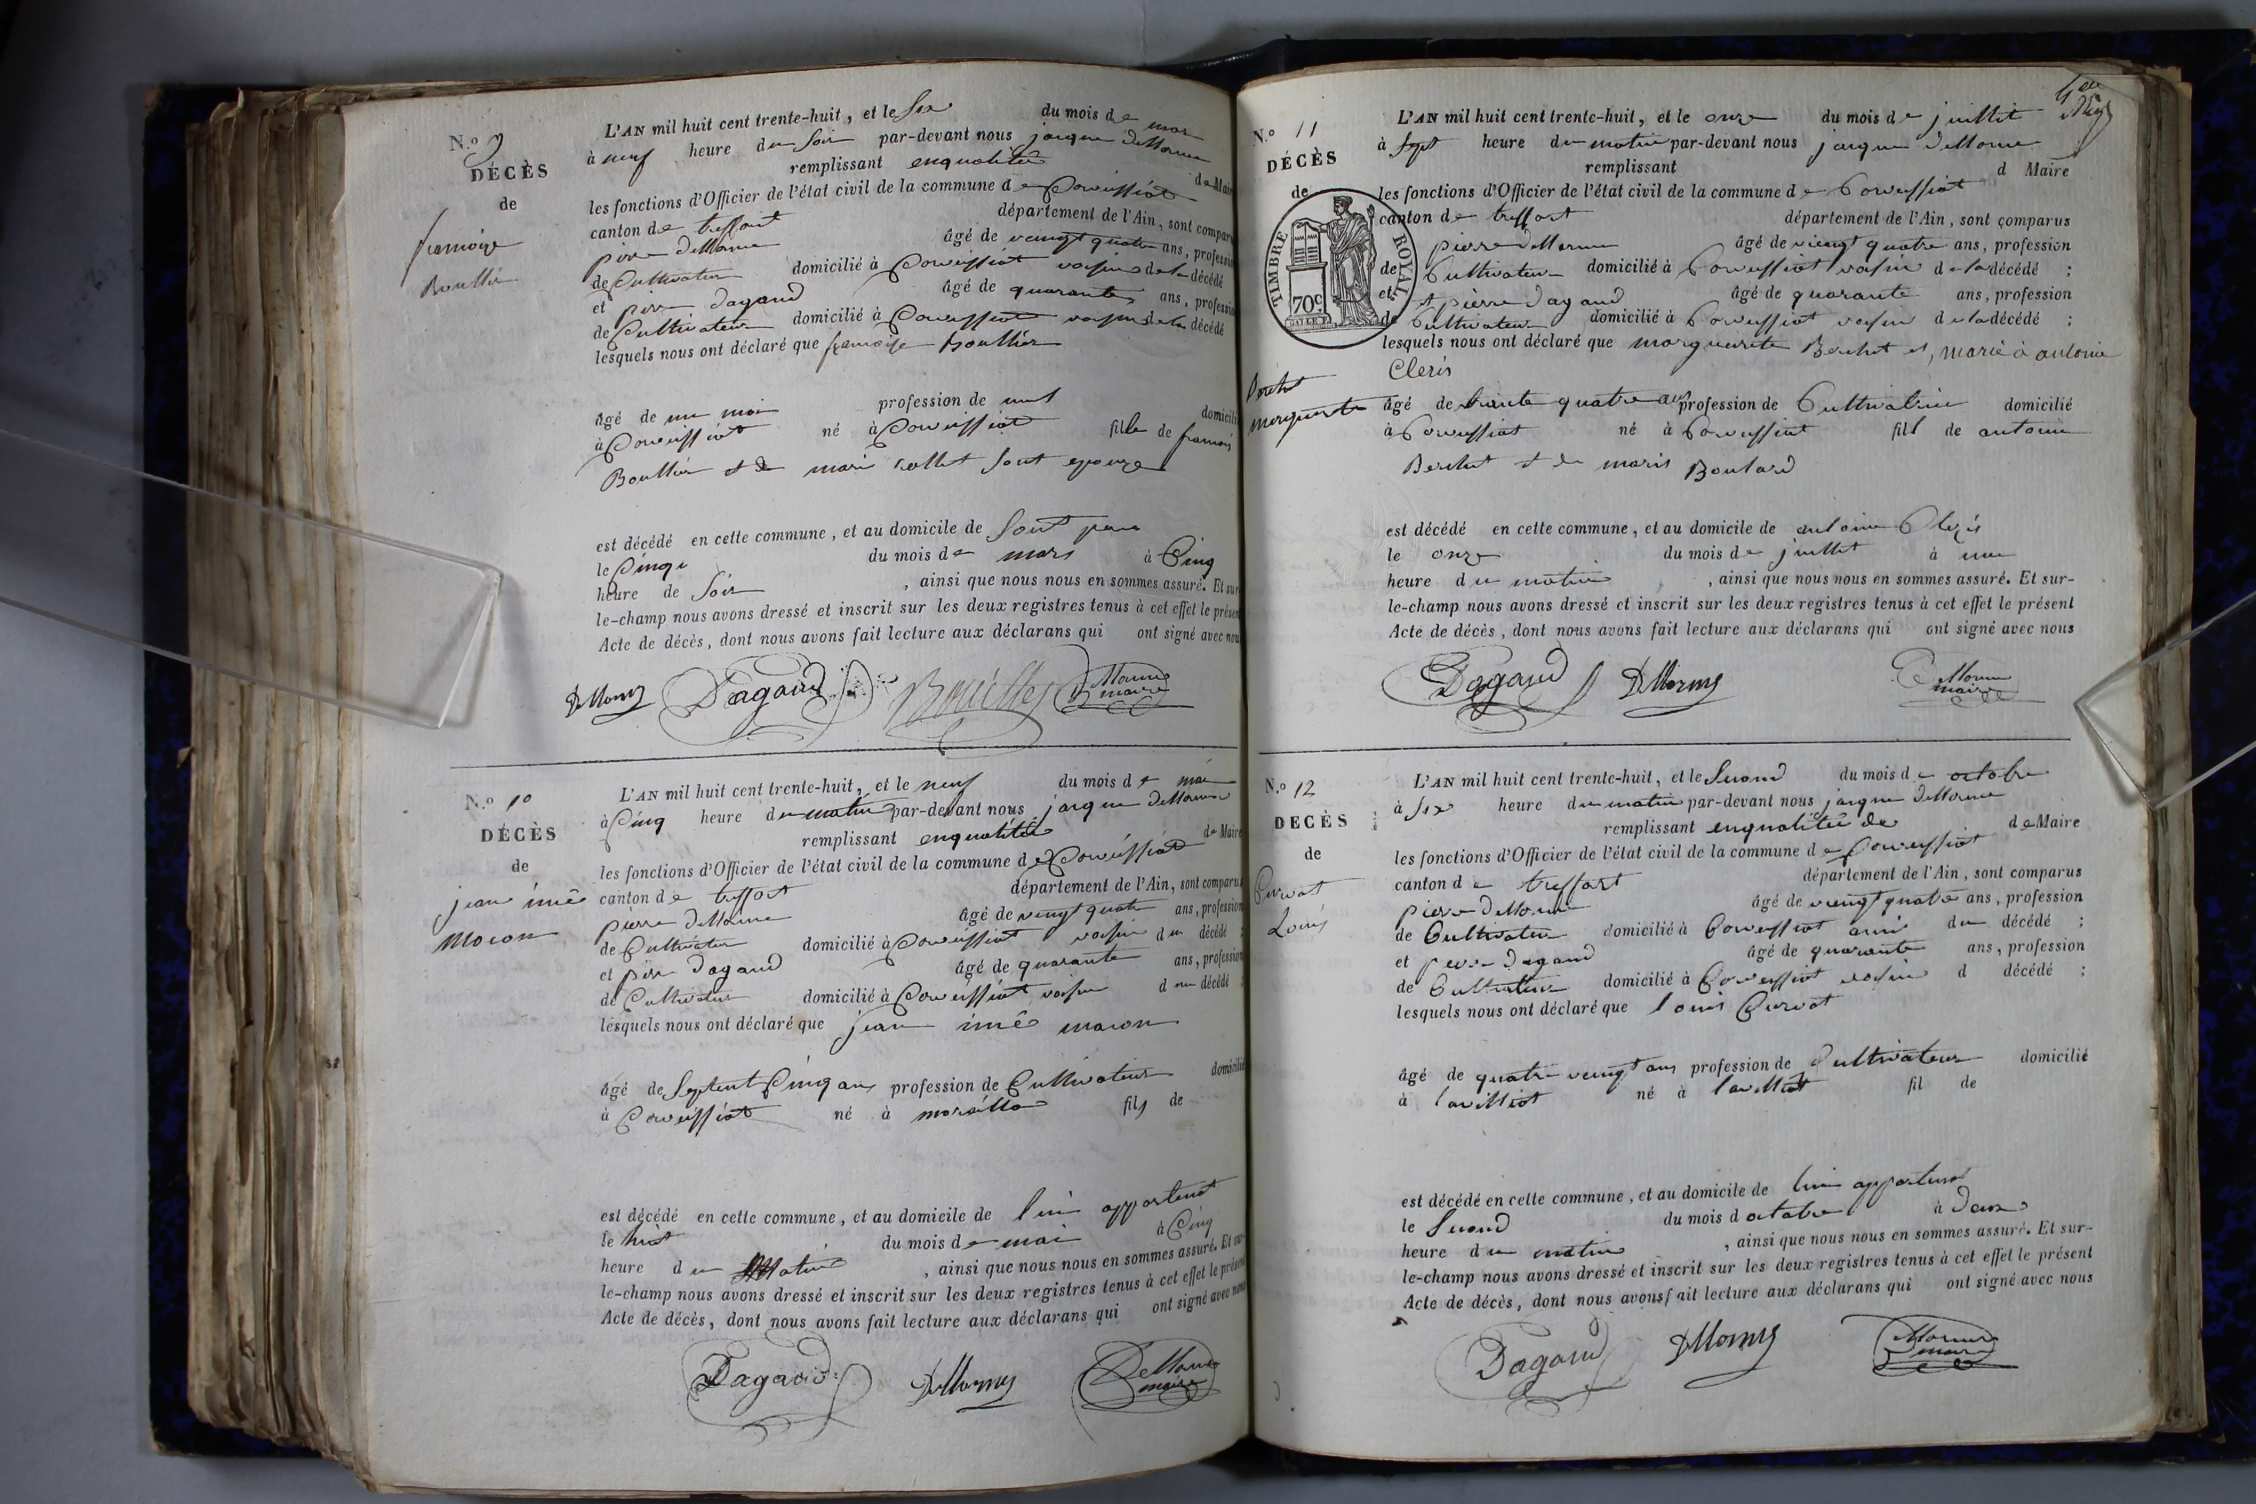 N.o 9
DÉCÈS
de
françoise
Boullier
L'AN mil huit cent trente-huit, et le six du mois de mars
à neuf heure du soir par-devant nous jacque deMorne
remplissant enqualitée de Maire
les fonctions d'Officier de l'état civil de la commune de Coweissiat
canton de treffort département de l'Ain, sont comparus
pierre deMorne âgé de veingt quatre ans, profession
de Cultivateur domicilié à Coweissiat voisin de la décédé
et pierre dagand âgé de quarante ans, profession
de Cultivateur domicilié à Coweissiat voisin de la décédé
lesquels nous ont déclaré que françoise Boullier
âgé de un moi profession de domicilié
à Coweissiat né à Coweissiat fille de françois
Boullier et de marie collet sont epouze
est décédé en cette commune, et au domicile de sont pere
le Cinq du mois de mars à Cinq
heure de soir, ainsi que nous nous en sommes assuré. Et sur
le-champ nous avons dressé et inscrit sur les deux registres tenus à cet effet le présent
Acte de décès, dont nous avons fait lecture aux déclarans qui ont signé avec nous
DeMorne Dagand Bouillier DeMorne maire
N.o 10
DÉCÈS
de
jean
Moron
L'AN mil huit cent trente-huit, et le neuf du mois de mai
à Cinq heure du matin par-devant nous jacque deMorne
remplissant enqualitée de Maire
les fonctions d'Officier de l'état civil de la commune de Coweissiat
canton de treffort département de l'Ain, sont comparus
pierre deMorne âgé de veingt quatre ans, profession
de Cultivateur domicilié à Coweissiat voisin du décédé ;
et pierre dagand âgé de quarante ans, profession
de Cultivateur domicilié à Coweissiat voisin du décédé ;
lesquels nous ont déclaré que jean moron
âgé de Septent Cinq ans profession de Cultivateur domicilié
à Coweissiat né à fils de
est décédé en cette commune, et au domicile de lui appartenat
le huit du mois de mai à Cinq
heure du Matin, ainsi que nous nous en sommes assuré. Et sur-
le-champ nous avons dressé et inscrit sur les deux registres tenus à cet effet le présent
Acte de décès, dont nous avons fait lecture aux déclarans qui ont signé avec nous
Dagand DeMorne DeMorne maire
N.o 11
DÉCÈS
de
TIMBRE ROYAL
70c
Berchet
marguerite
L'AN mil huit cent trente-huit, et le onze du mois de juillet
à sept heure du matin par-devant nous jacque deMorne
remplissant d Maire
les fonctions d'Officier de l'état civil de la commune de Coweissiat
canton de treffort département de l'Ain, sont comparus
pierre deMorne âgé de vieingt quatre ans, profession
de Cultivateur domicilié à Coweissiat voisin de la décédé ;
et pierre dagand âgé de quarante ans, profession
de Cultivateur domicilié à Coweissiat voisin de la décédé ;
lesquels nous ont déclaré que marguerite Berchet et, marié à antoine
Cleris
âgé de trente quatre ans profession de Cultivatrice domicilié
à Coweissiat né à Coweissiat fill de antoine
Berchet et de marie Boulard
est décédé en cette commune, et au domicile de antoine
le onze du mois de juillet à une
heure du matin, ainsi que nous nous en sommes assuré. Et sur-
le-champ nous avons dressé et inscrit sur les deux registres tenus à cet effet le présent
Acte de décès, dont nous avons fait lecture aux déclarans qui ont signé avec nous
Dagand DeMorne DeMorne maire
N.o 12
DECÈS
de
Curvat
Louis
L'AN mil huit cent trente-huit, et le Second du mois de octobre
à six heure du matin par-devant nous jacque deMorne
remplissant enqualitée de de Maire
les fonctions d'Officier de l'état civil de la commune de Coweissiat
canton de treffort département de l'Ain, sont comparus
pierre deMorne âgé de veingt quatre ans, profession
de Cultivateur domicilié à Coweissiat ami du décédé ;
et pierre dagand âgé de quarante ans, profession
de Cultivateur domicilié à Coweissiat voisin d décédé ;
lesquels nous ont déclaré que louis Curvat
âgé de quatre veingt ans profession de Cultivateur domicilié
à lavilliat né à lavilliat fil de
est décédé en cette commune, et au domicile de lui appartenat
le Second du mois d octobre à deux
heure du matin, ainsi que nous nous en sommes assuré. Et sur-
le-champ nous avons dressé et inscrit sur les deux registres tenus à cet effet le présent
Acte de décès, dont nous avons fait lecture aux déclarans qui ont signé avec nous
Dagand DeMorne DeMorne maire